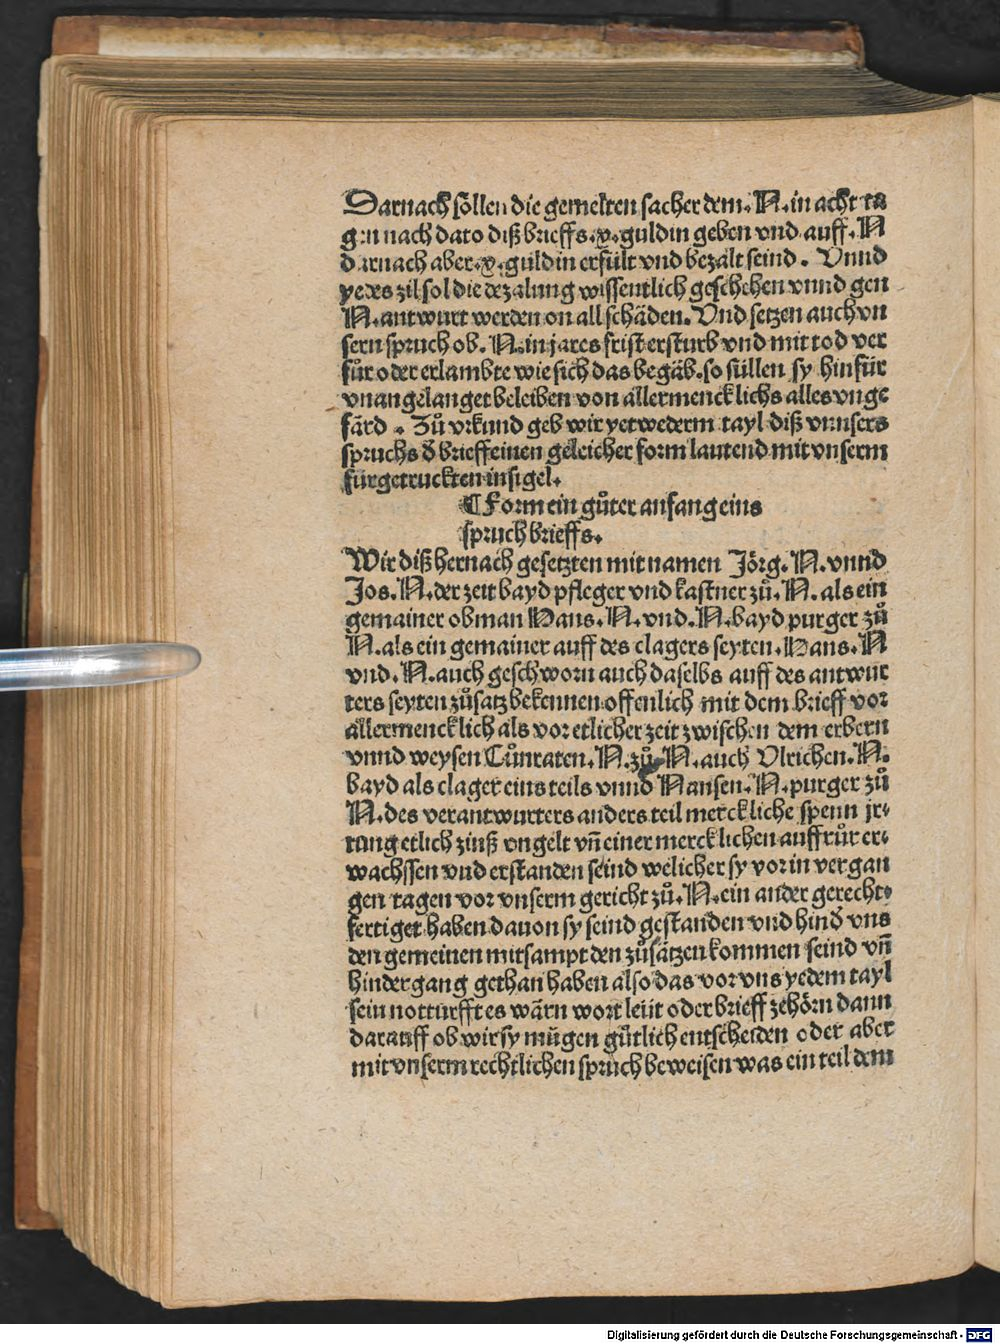 Darnach söllen die gemelten sacher dem. N. in acht ta
gen nach dato diß brieffs .x. guldin geben vnd auff. N
darnach aber .x. guldin erfült vnd bezalt seind. Vnnd
yedes zil sol die bezalung wissentlich geschehen vnnd gen
N. antwurt werden on all schäden. Vnd setzen auch vn
sern spruch ob. N. in jares frist ersturb vnd mit tod ver
fůr oder erlambte wie sich das begäb. so süllen sy hinfür
vnangelanget beleiben von allermencklichs alles vnge
färd . Zů vrkund geb wir yetwederm tayl diß vnnsers
spruchs d̕ brieff einen geleicher form lautend mit vnserm
fürgetruckten insigel.
¶ Form ein gůter anfang eins
spruchbrieffs.
Wir diß hernach gesetzten mit namen Jörg. N. vnnd
Jos. N. der zeit bayd pfleger vnd kastner zů. N. als ein
gemainer obman Hans. N. vnd. N. bayd purger zů
N. als ein gemainer auff des clagers seyten. Hans. N
vnd. N. auch geschworn auch daselbs auff des antwur
ters seyten zůsatz bekennen offenlich mit dem brieff vor
allermencklich als vor etlicher zeit zwischen dem erbern
vnnd weysen Cůnraten. N. zů. N. auch Vlrichen. N.
bayd als clager eins teils vnnd Hansen. N. purger zů
N. des verantwurters anders teil merckliche spenn jr⸗
rung etlich zinß vngelt vñ einer mercklichen auffrůr er⸗
wachssen vnd erstanden seind welicher sy vor in vergan
gen tagen vor vnserm gericht zů. N. ein ander gerecht⸗
fertiget haben dauon sy seind gestanden vnd hind̕ vns
den gemeinen mitsampt den zůsätzen kommen seind vñ
hindergang gethan haben also das vor vns yedem tayl
sein notturfft es wärn wort leüt oder brieff zehörn dann
darauff ob wir sy mügen gütlich entscheiden oder aber
mit vnserm rechtlichen spruch beweisen was ein teil dem
Digitalisierung gefördert durch die Deutsche Forschungsgemeinschaft - DFG